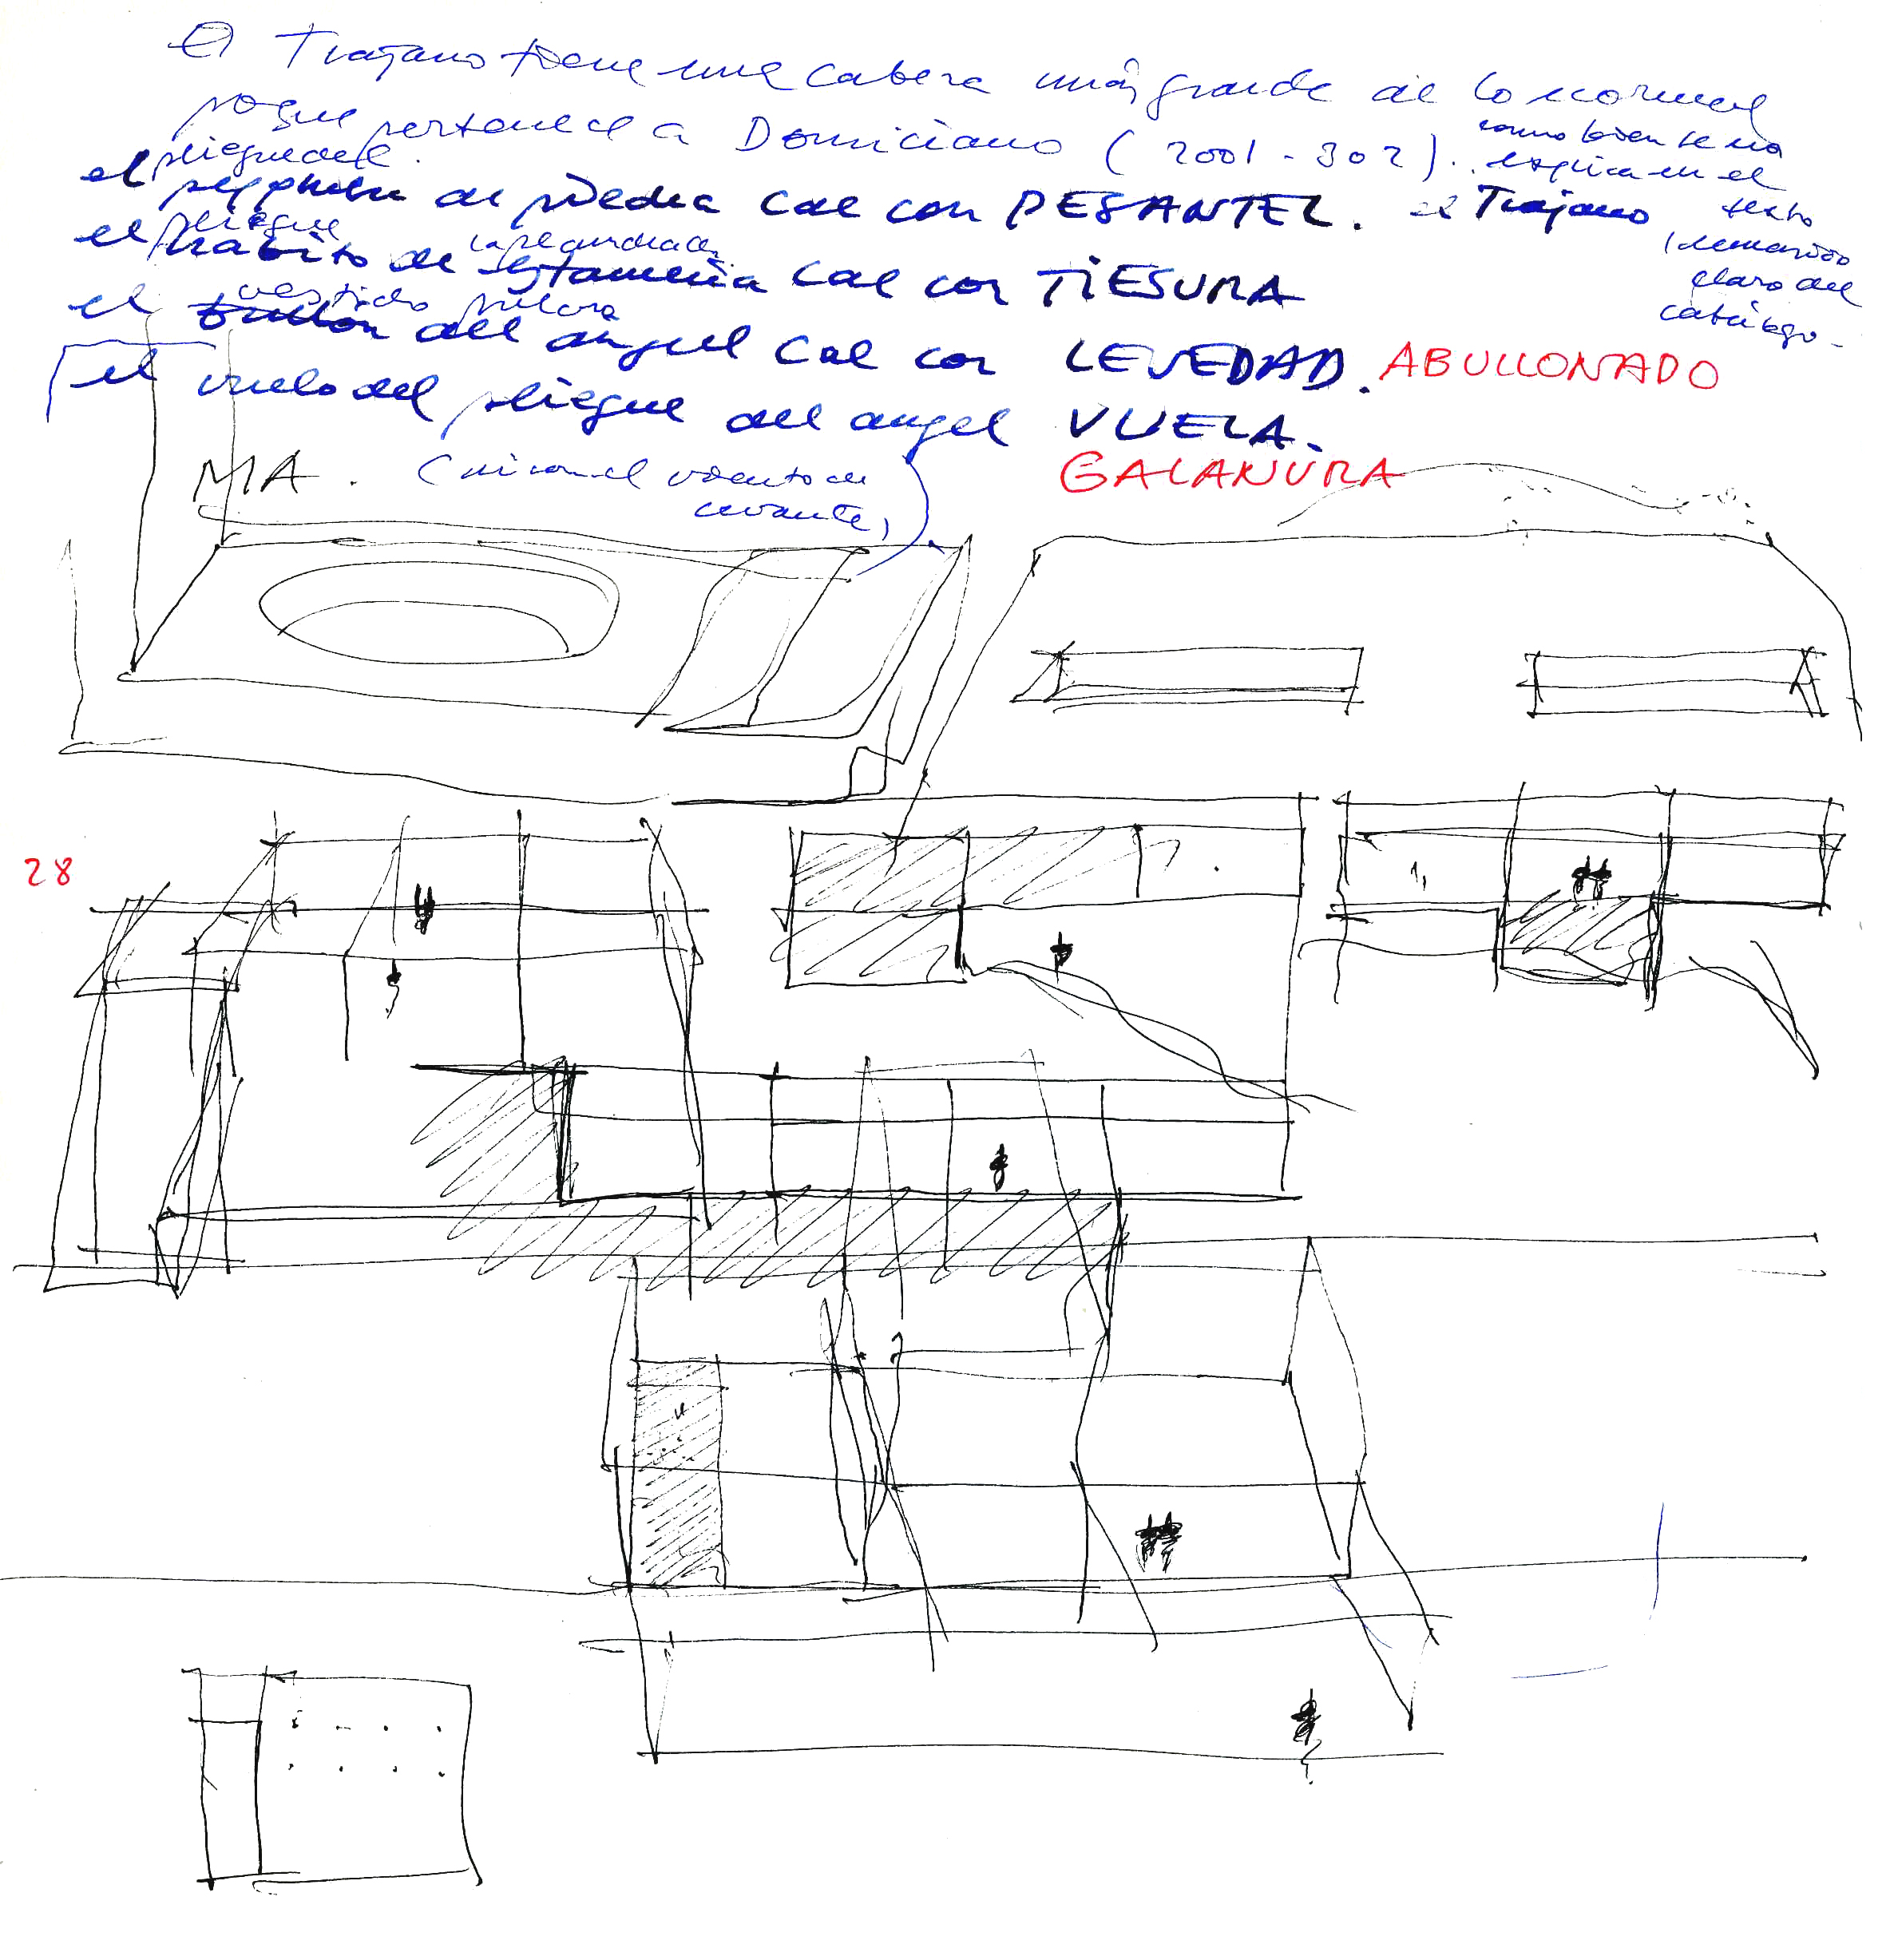 El Trajano tiene una cabeza más grande de lo normal
poque pertenece a Domiciano (2001-302). como bien se nos
explica en el
texto
(demasiado
claro del
catálogo.
el pliegue del
de piedra cae con PESANTEZ. el Trajano
el pliegue
hábito de estameña cae con TIESURA
el vestido
del angel cae con LEVEDAD. ABULLONADO
el vuelo del pliegue del angel VUELA.
MA. (ni con el viento de
levante)
GALANURA
28